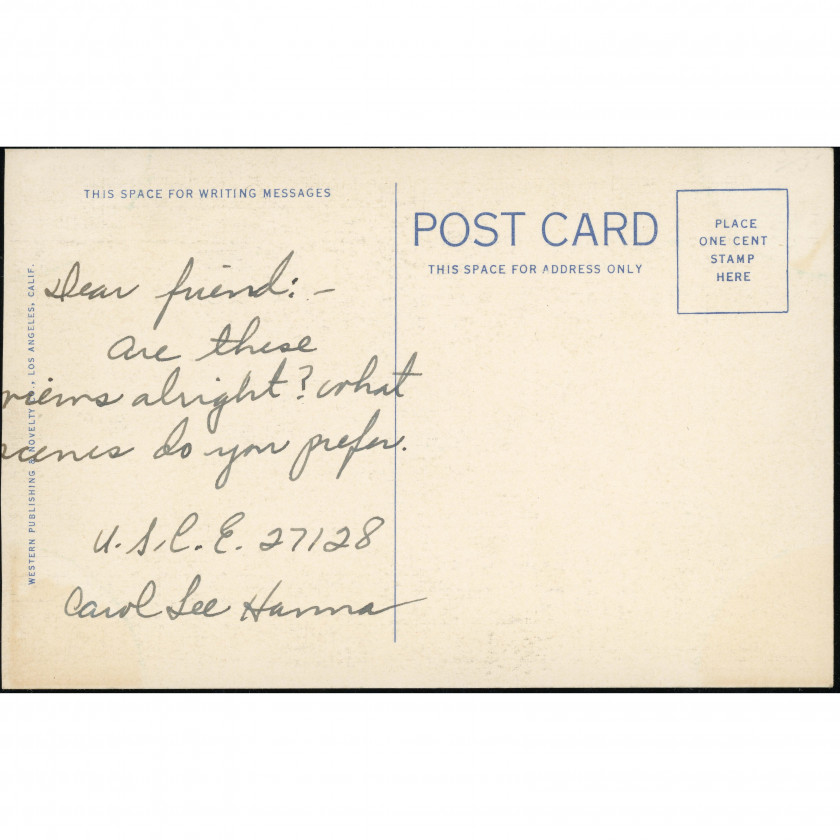 THIS SPACE FOR WRITING MESSAGES
Dear friend:-
are these
views alright? what
scenes do you prefer.
U.S.C.E. 27128
Carol Lee Hanna
WESTERN PUBLISHING & NOVELTY CO., LOS ANGELES, CALIF.
POST CARD
THIS SPACE FOR ADDRESS ONLY
PLACE
ONE CENT
STAMP
HERE